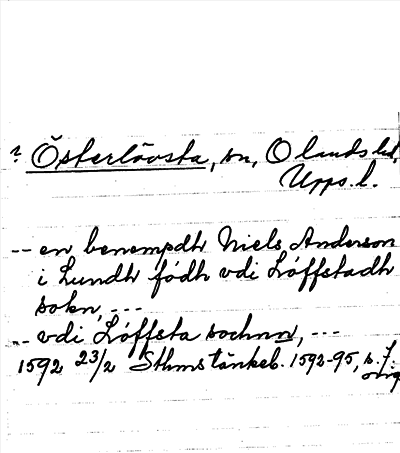 ? Österlövsta, sn, Olands hd,
Upps. l.
-- en benempdh Niels Anderson
i Lundh födh vdi Löffstadh
sokn, ---
-- vdi Löffsta sochnn, ---
1592 23/2 Sthms tänkeb. 1592-95, s. 7.
orig